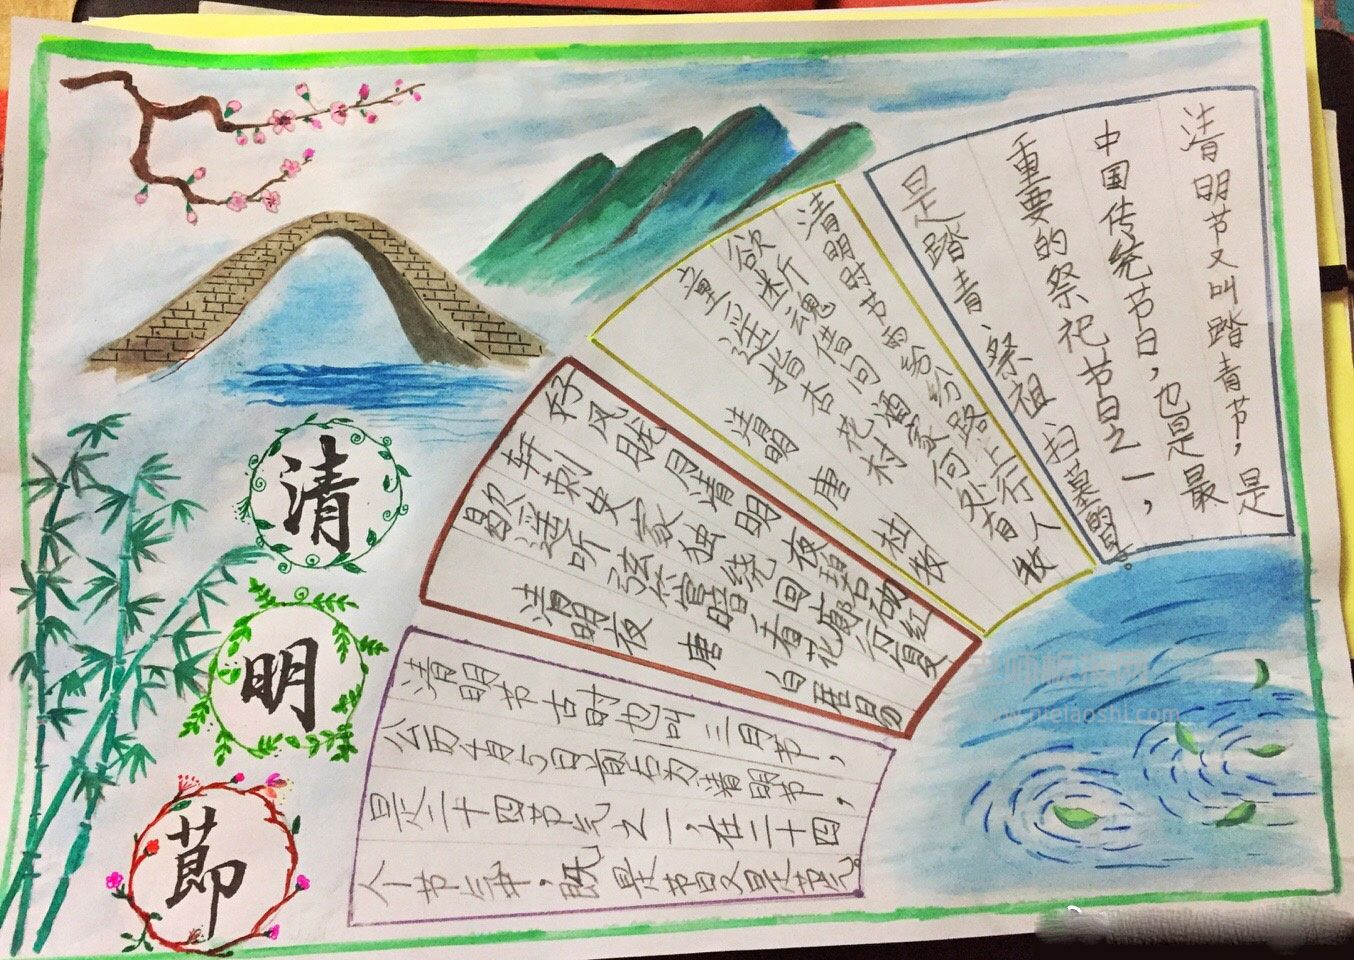 清
明
節
清明节又叫踏青节，是
中国传统节日，也是最
重要的祭祀节日之一，
是踏青、祭祖、扫墓的日。
清明时节雨纷纷路上行人
欲断魂借问酒家何处有牧
童遥指杏花村
清明 唐 杜牧
好风胧月清明夜碧砌红
轩刺史家独绕回廊行复
歇遥听弦管暗看花
清明夜 唐 白居易
清明节古时也叫三月节，
公历4月5日前后为清明节，
是二十四节气之一，在二十四
个节气中，既是节日又是节气。
www.nielaoshi.com